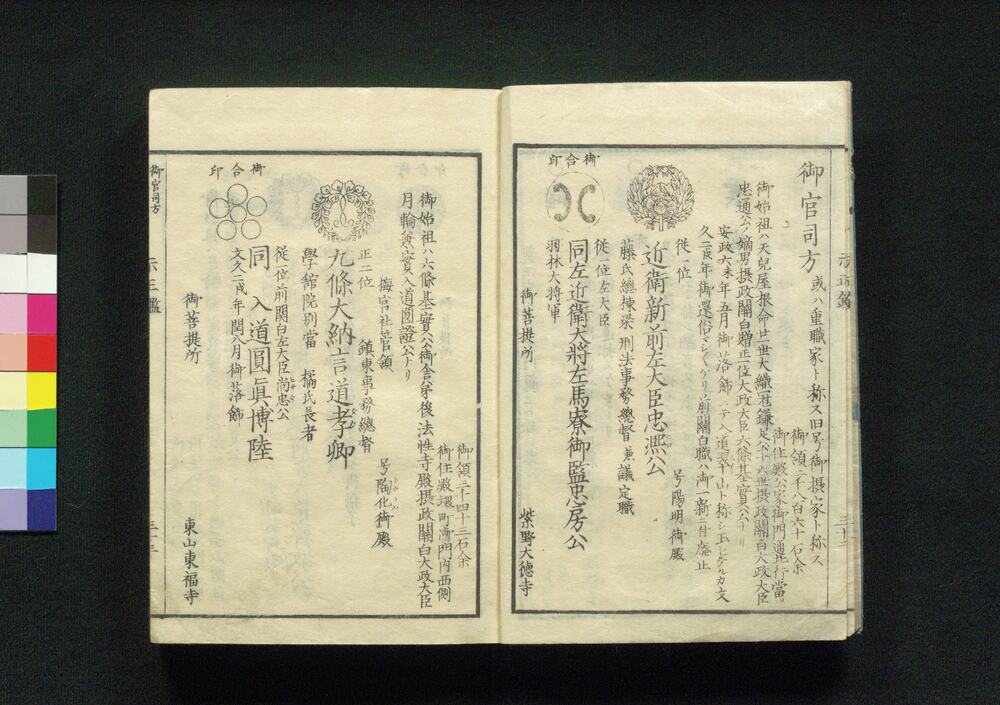 御官司方 或ハ重職家ト称ス旧号御摂家ト称ス
御領二千八百六十石余
御住殿公家御門通
御始祖ハ天兒屋根命廿一世大織冠鎌足公十六世摂政關白大政大臣
忠通公ノ嫡男摂政關白贈正一位大政大臣六條基實公ナリ
安政六未年五月御落飾シテ入道翠山ト称シ玉
久二戌年御還俗 前關白職ハ御一新ニ付廃止
從一位
近衛新前左大臣忠凞公
号陽明御殿
藤氏總棟梁刑法事務總督兼議定職
從一位左大臣
同左近衛大將左馬寮御監忠房公
羽林大将軍
御合印
御菩提所 紫野大徳寺
御領二千四十三石余
御住殿堺町御門内西側
御始祖ハ六條基實公御舎弟後法性寺殿摂政關白大政大臣
月輪兼實入道圓證公ナリ
梅宮社管領
号陶化御殿
鎮東事務總督
正二位
九條大納言道孝卿
學館院別當 橘氏長者
從一位前関白左大臣尚忠公
同 入道圓眞博陸
文久二戌年閏八月御落飾
御合印
御菩提所 東山東福寺
御官司方